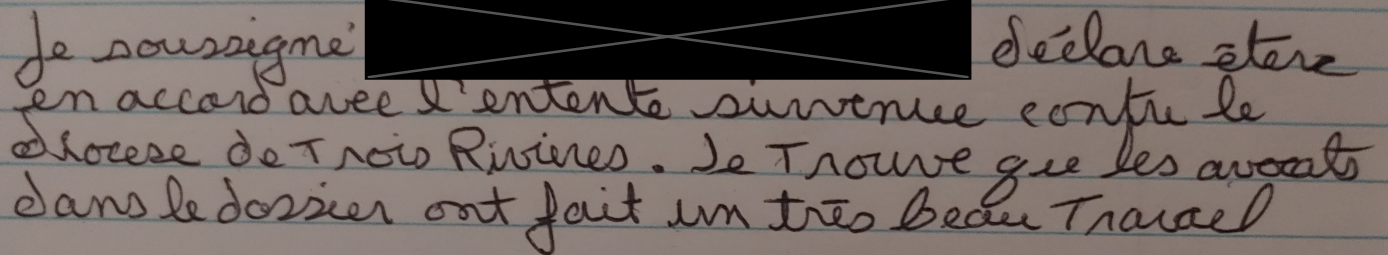 Je soussigné déclare être
en accord avec l'entente survenue contre le
diocese de Trois Rivieres. Je Trouve que les avocats
dans le dossier ont fait un très beau Travael